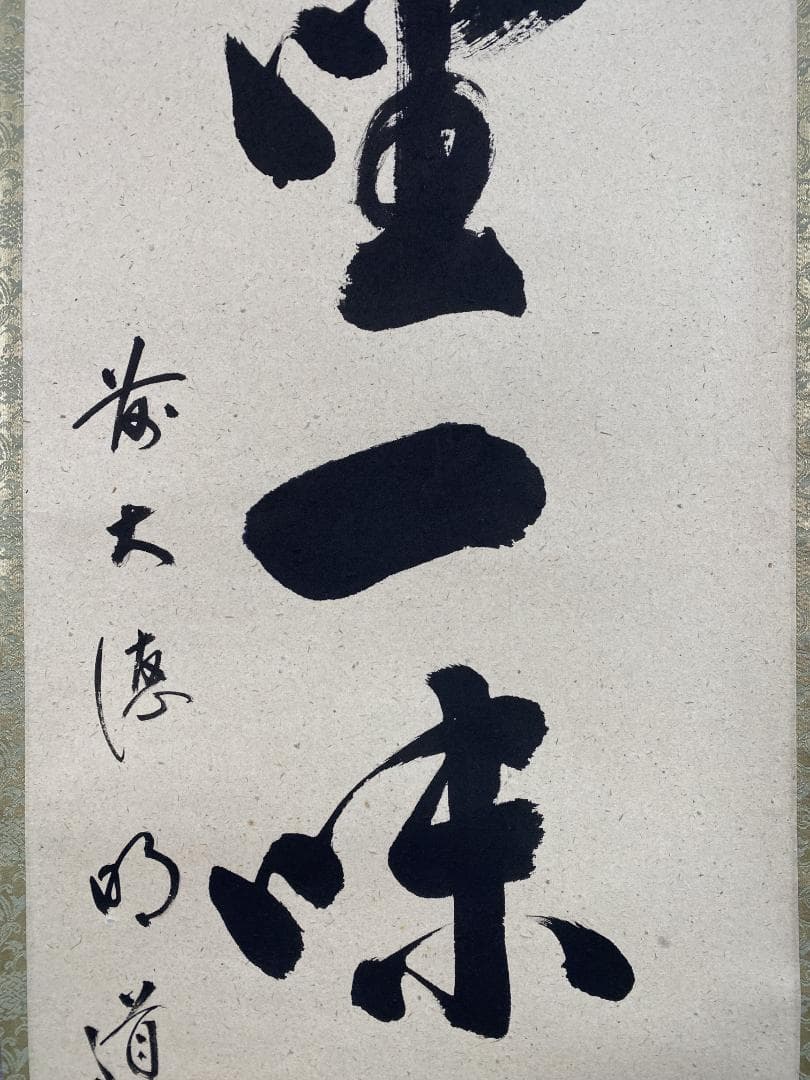 一味
前大徳明道